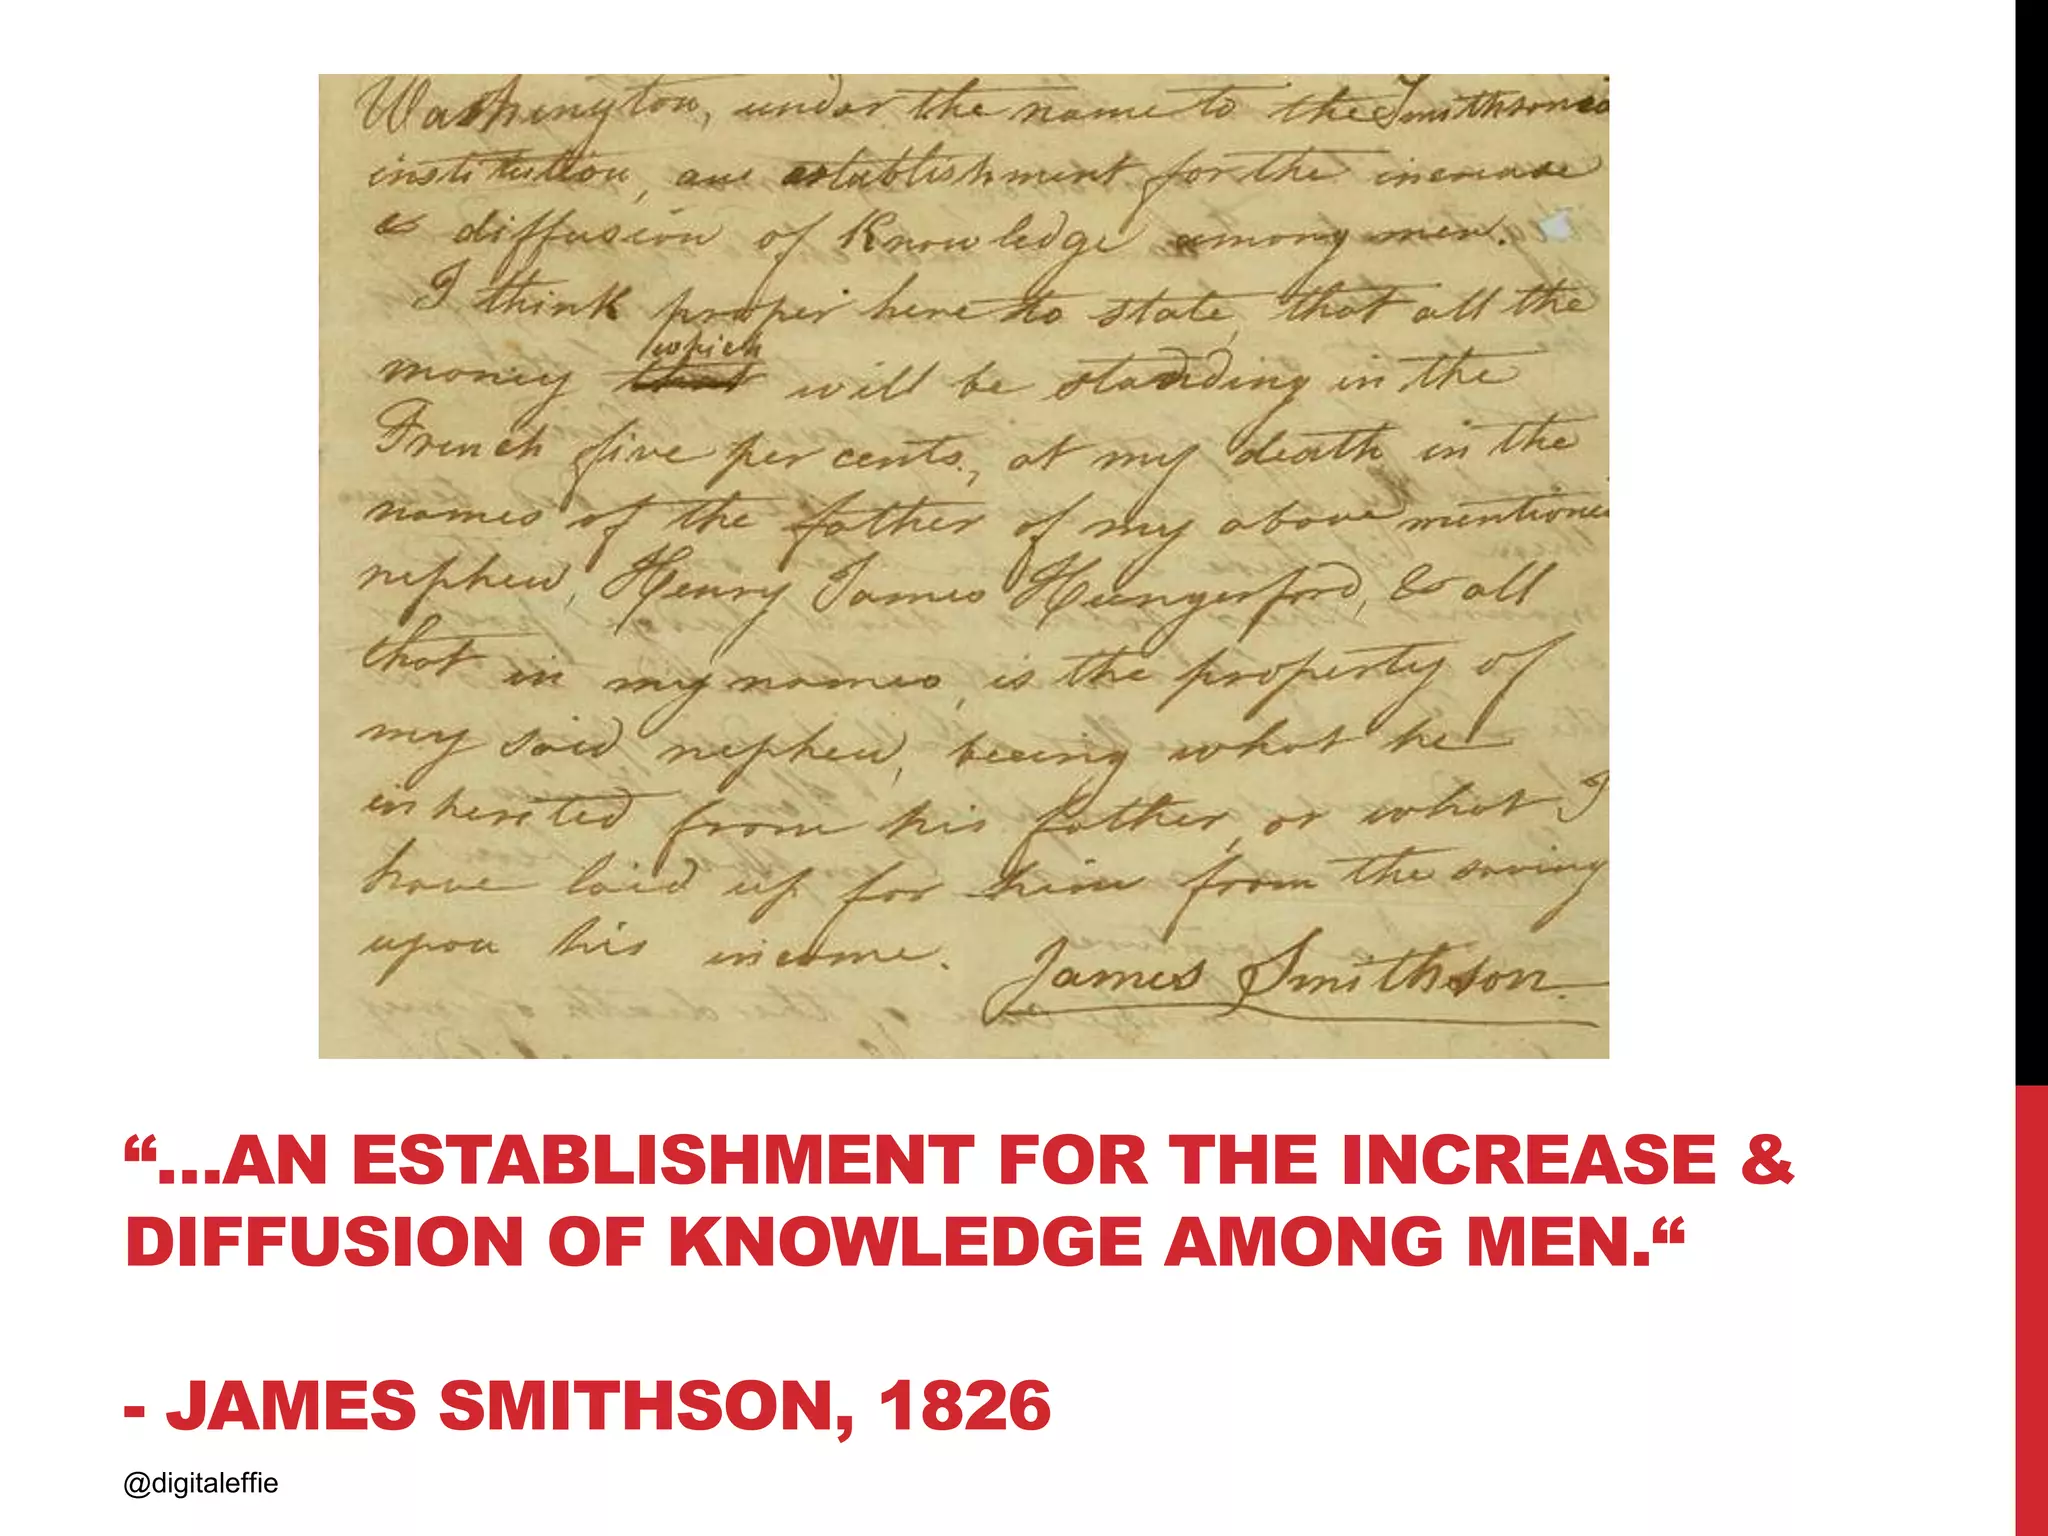 Washington, under the name to the Smithsonia
institution, an establishment for the increase
& diffusion of Knowledge among men.
I think proper here to state, that all the
which
money that will be standing in the
French five per cents., at my death in the
names of the father of my above mentioned
nephew, Henry James Hungerford, & all
that in my names, is the property of
my said nephew, being what he
inherited from his father, or what I
have laid up for him from the saving
upon his income. James Smithson.
“…AN ESTABLISHMENT FOR THE INCREASE &
DIFFUSION OF KNOWLEDGE AMONG MEN.“
- JAMES SMITHSON, 1826
@digitaleffie